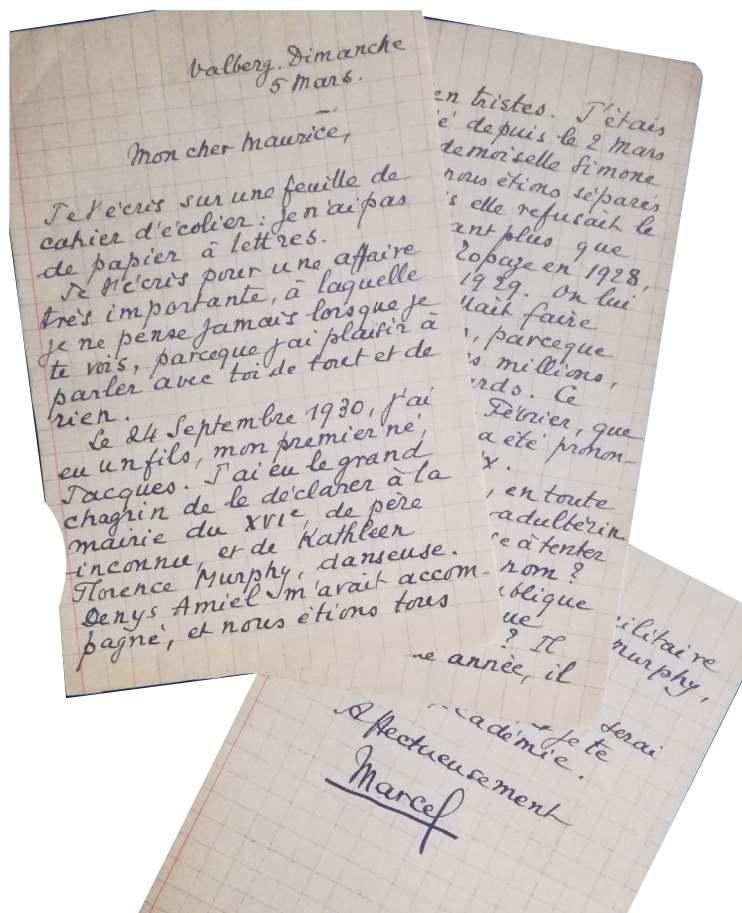 Valberg. Dimanche
5 Mars.
Mon cher Maurice,
Je t'écris sur une feuille de
cahier d'écolier : je n'ai pas
de papier à lettres.
Je t'écris pour une affaire
très importante, à laquelle
je ne pense jamais lorsque je
te vois, parceque j'ai plaisir à
parler avec toi de tout et de
rien.
Le 24 Septembre 1930, j'ai
eu un fils, mon premier né,
Jacques. J'ai eu le grand
chagrin de le déclarer à la
mairie du XVIe, de père
inconnu, et de Kathleen
Florence Murphy, danseuse.
Denys Amiel m'avait accom-
pagné, et nous étions tous
en tristes. J'étais
é depuis le 2 mars
demoiselle Simone
nous étions séparés
s elle refusait le
ant plus que
Topaze en 1928,
1929. On lui
llait faire
, parceque
s millions,
ards. Ce
Février, que
a été pronon-
x.
, en toute
adultérin
e à tenter
nom ?
ublique
ue
? Il
ne année, il
militaire
Murphy,
serai
je te
cadémie.
Affectueusement
Marcel